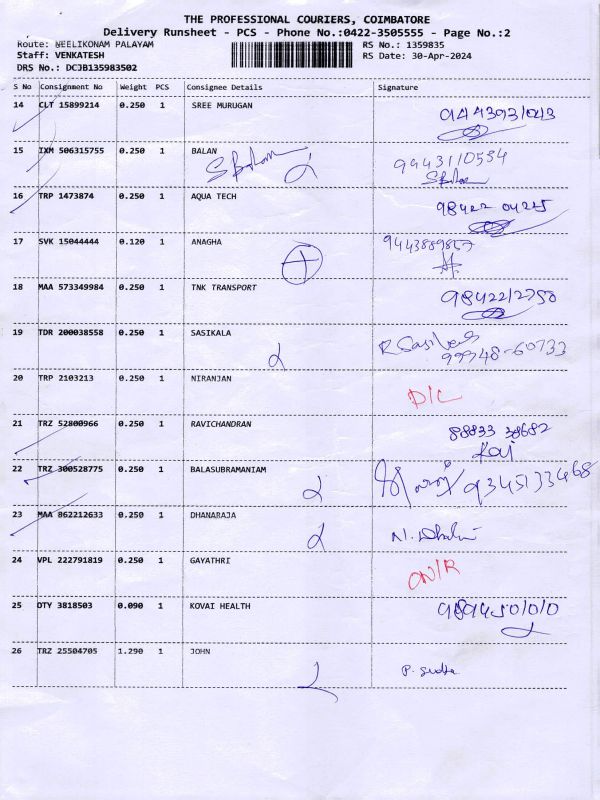 THE PROFESSIONAL COURIERS, COIMBATORE
Delivery Runsheet - PCS - Phone No.:0422-3505555 - Page No.:2
Route: NEELIKONAM PALAYAM RS No.: 1359835
Staff: VENKATESH RS Date: 30-Apr-2024
DRS No.: DCJB135983502
S No Consignment No Weight PCS Consignee Details Signature
14 CLT 15899214 0.250 1 SREE MURUGAN
15 IXM 506315755 0.250 1 BALAN 9443110534
16 TRP 1473874 0.250 1 AQUA TECH 98422 04225
17 SVK 15044444 0.120 1 ANAGHA 9443889857
18 MAA 573349984 0.250 1 TNK TRANSPORT 9842212750
19 TDR 200038558 0.250 1 SASIKALA R Sasikala
99948-60733
20 TRP 2103213 0.250 1 NIRANJAN D/L
21 TRZ 52800966 0.250 1 RAVICHANDRAN 88833 38682
Ravi
22 TRZ 300528775 0.250 1 BALASUBRAMANIAM 9345133468
23 MAA 862212633 0.250 1 DHANARAJA
24 VPL 222791819 0.250 1 GAYATHRI
25 OTY 3818503 0.090 1 KOVAI HEALTH 9894501010
26 TRZ 25504705 1.290 1 JOHN P. Sudha